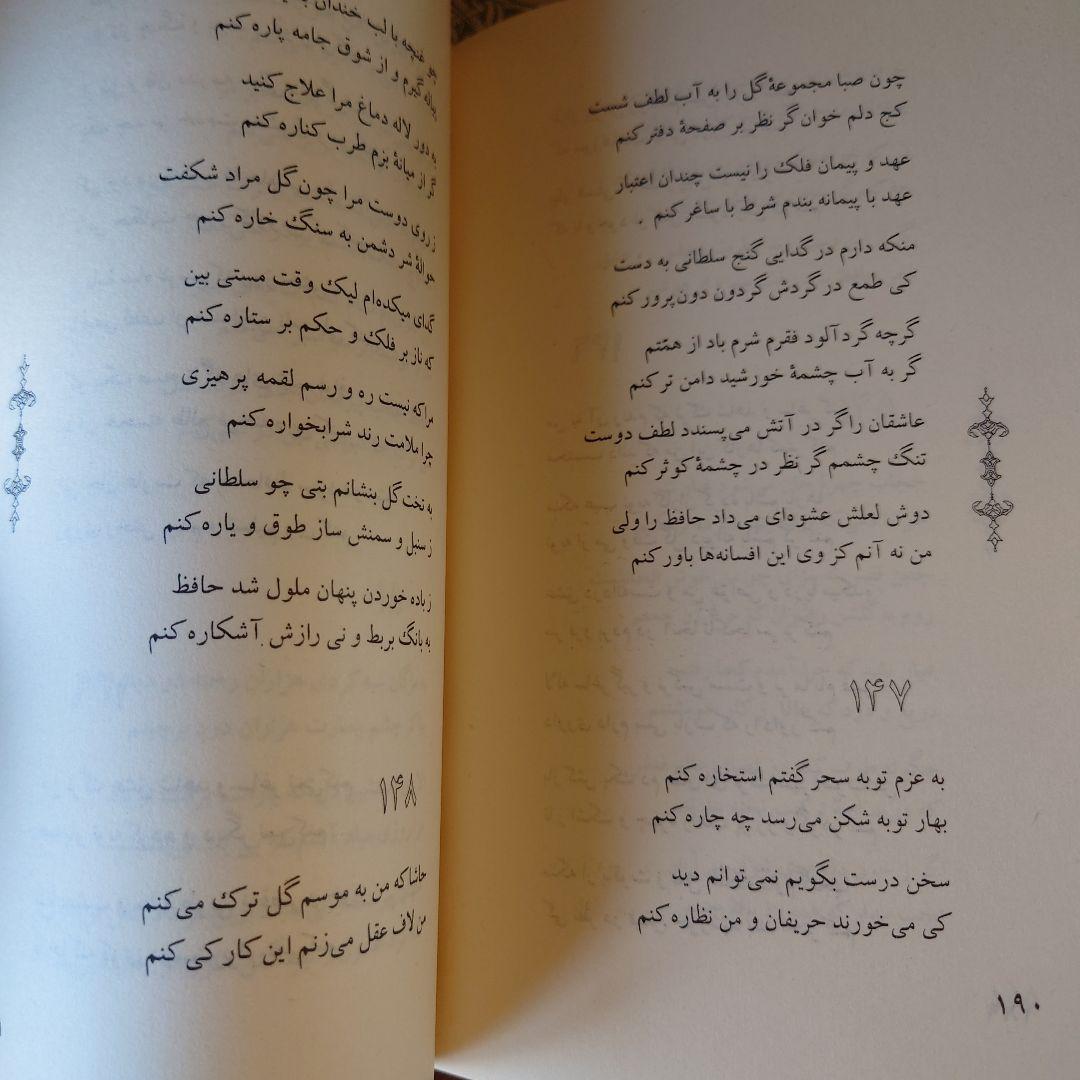 چون صبا مجموعهٔ گل را به آب لطف شست
کج دلم خوان گر نظر بر صفحهٔ دفتر کنم
عهد و پیمان فلک را نیست چندان اعتبار
عهد با پیمانه بندم شرط با ساغر کنم .
منکه دارم در گدایی گنج سلطانی به دست
کی طمع در گردش گردون دون‌پرور کنم
گرچه گرد آلود فقرم شرم باد از همّتم
گر به آب چشمهٔ خورشید دامن تر کنم
عاشقان را گر در آتش می‌پسندد لطف دوست
تنگ چشمم گر نظر در چشمهٔ کوثر کنم
دوش لعلش عشوه‌ای می‌داد حافظ را ولی
من نه آنم کز وی این افسانه‌ها باور کنم
۱۴۷
به عزم توبه سحر گفتم استخاره کنم
بهار توبه شکن می‌رسد چه چاره کنم
سخن درست بگویم نمی‌توانم دید
کی می‌خورند حریفان و من نظاره کنم
۱۹۰
چو غنچه با لب خندان
گیرم و از شوق جامه پاره کنم
به دور لاله دماغ مرا علاج کنید
گر از میانهٔ بزم طرب کناره کنم
ز روی دوست مرا چون گل مراد شکفت
حوالهٔ شر دشمن به سنگ خاره کنم
گدای میکده‌ام لیک وقت مستی بین
که ناز بر فلک و حکم بر ستاره کنم
مرا که نیست ره و رسم لقمه پرهیزی
چرا ملامت رند شرابخواره کنم
به تخت گل بنشانم بتی چو سلطانی
ز سنبل و سمنش ساز طوق و یاره کنم
ز باده خوردن پنهان ملول شد حافظ
به بانگ بربط و نی رازش آشکاره کنم
۱۴۸
حاشا که من به موسم گل ترک می‌کنم
من لاف عقل می‌زنم این کار کی کنم